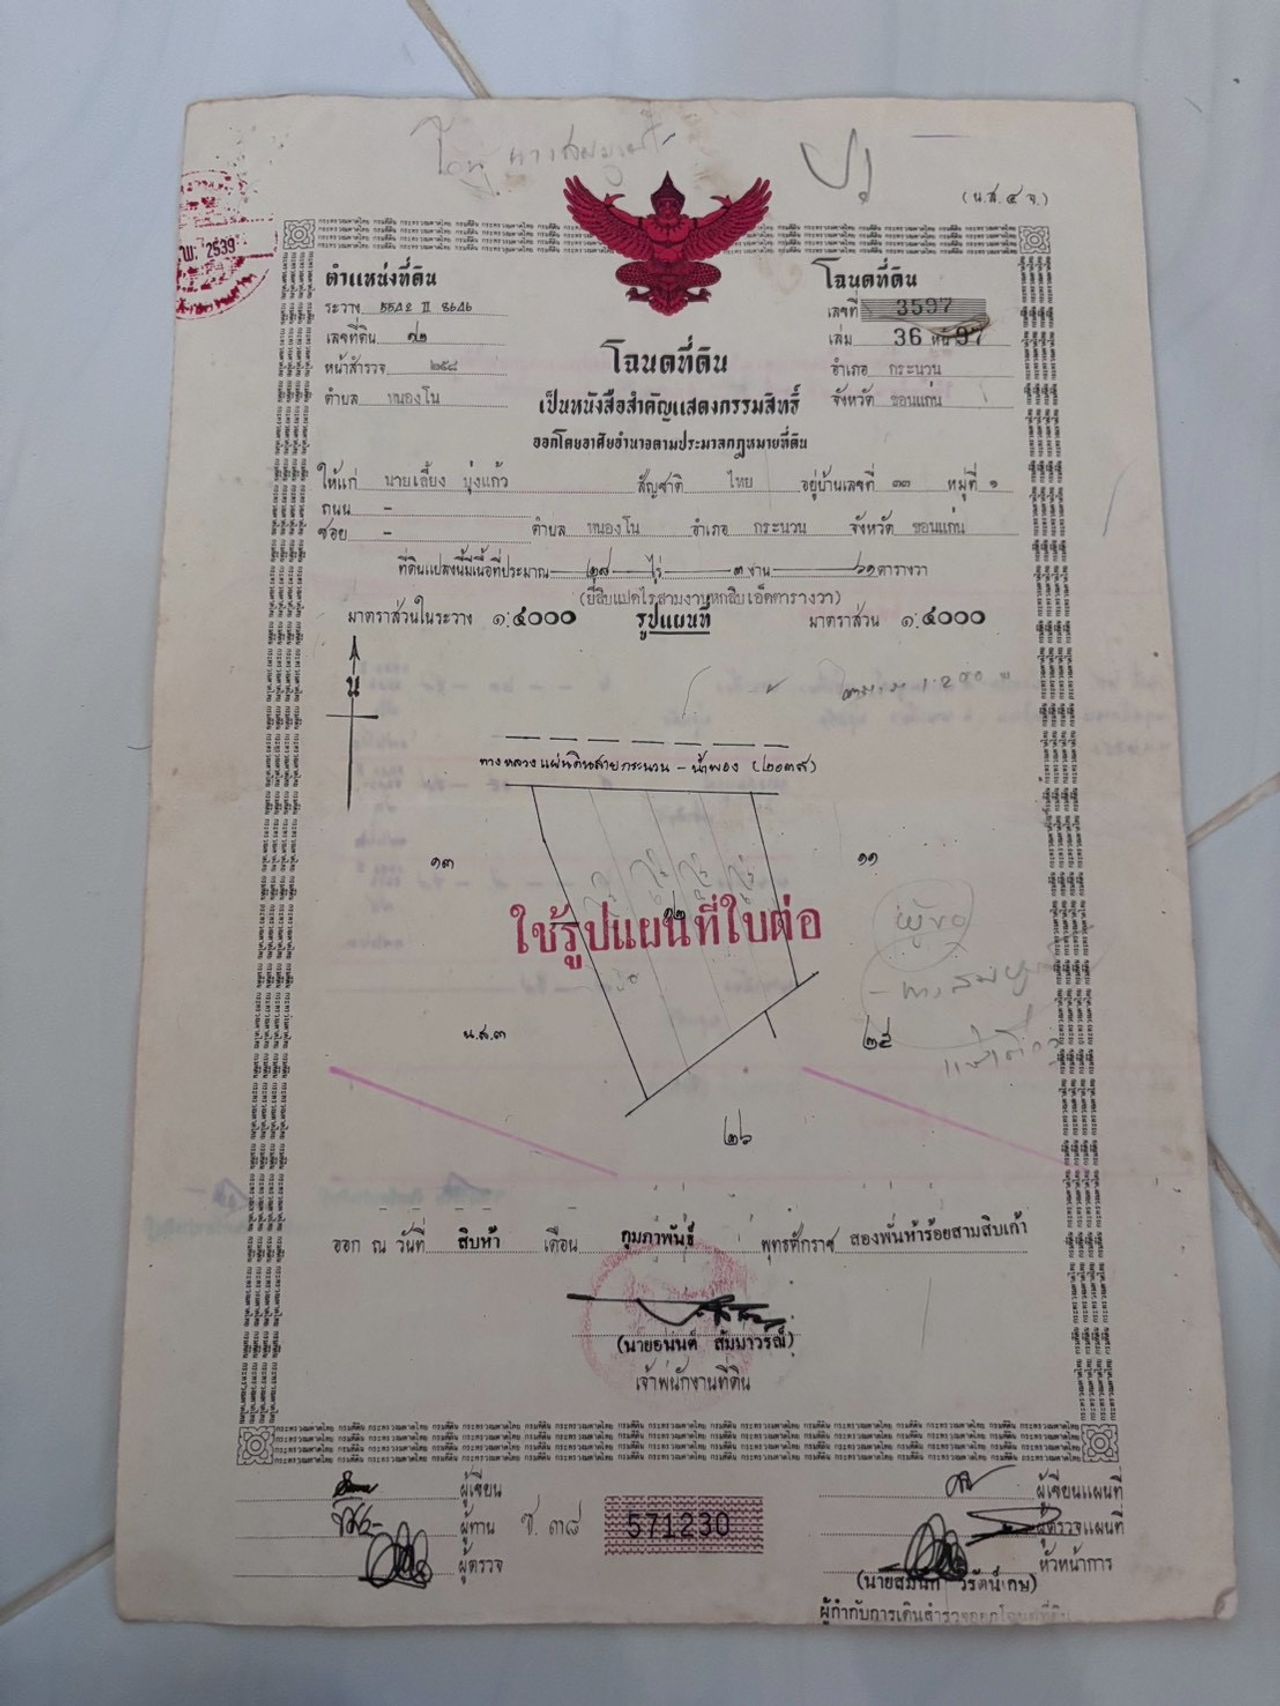 (น.ส.๔ จ.)
พ. 2539
ตำแหน่งที่ดิน
โฉนดที่ดิน
ระวาง 5542 II 8646
เลขที่ 3597
เลขที่ดิน ๑๒
เล่ม 36 หน้า 97
หน้าสำรวจ ๒๕๘
อำเภอ กระนวน
ตำบล หนองโน
จังหวัด ขอนแก่น
โฉนดที่ดิน
เป็นหนังสือสำคัญแสดงกรรมสิทธิ์
ออกโดยอาศัยอำนาจตามประมวลกฎหมายที่ดิน
ให้แก่ นายเลี้ยง บุ่งแก้ว สัญชาติ ไทย อยู่บ้านเลขที่ ๓๓ หมู่ที่ ๑
ถนน -
ซอย - ตำบล หนองโน อำเภอ กระนวน จังหวัด ขอนแก่น
ที่ดินแปลงนี้มีเนื้อที่ประมาณ ๒๘ ไร่ ๓ งาน ๖๑ ตารางวา
(ยี่สิบแปดไร่สามงานหกสิบเอ็ดตารางวา)
มาตราส่วนในระวาง ๑:๔๐๐๐ รูปแผนที่ มาตราส่วน ๑:๔๐๐๐
น
ทางหลวงแผ่นดินสายกระนวน - น้ำพอง (๒๐๓๙)
๑๓
๑๑
๑๒
ใช้รูปแผนที่ใบต่อ
ผู้ขอ
น.ส.๓
๒๕
๒๖
ออก ณ วันที่ สิบห้า เดือน กุมภาพันธ์ พุทธศักราช สองพันห้าร้อยสามสิบเก้า
เจ้าพนักงานที่ดิน
ผู้เขียน
ผู้เขียนแผนที่
ผู้ทาน
ช. ๓๘
571230
ผู้ตรวจแผนที่
ผู้ตรวจ
หัวหน้าการ
ผู้กำกับการเดินสำรวจออกโฉนดที่ดิน